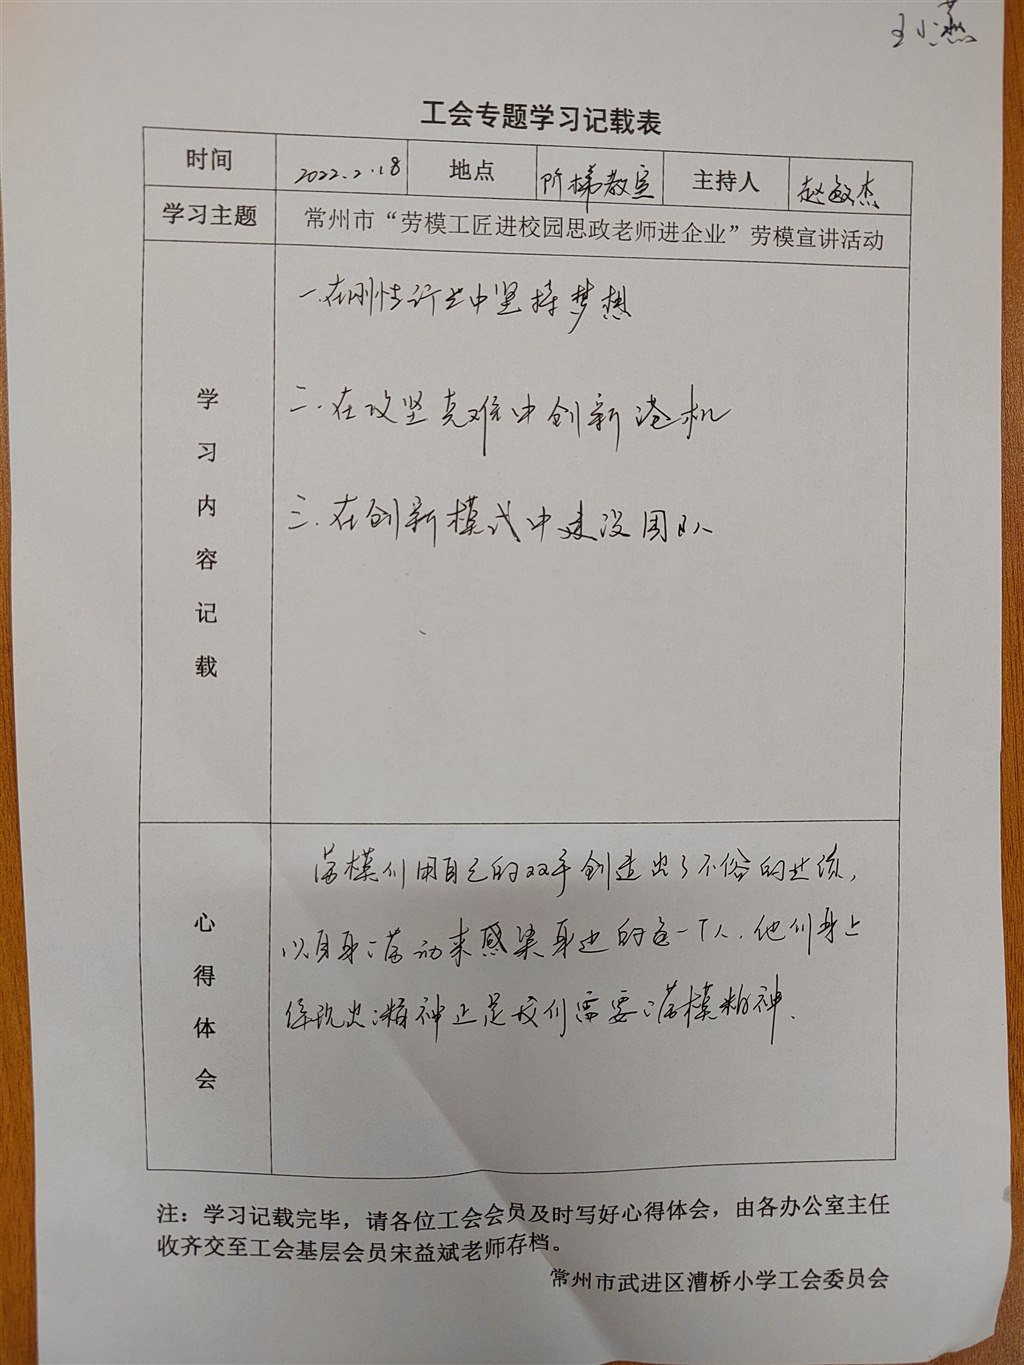 王小燕
工会专题学习记载表
时间 2022.2.18 地点 阶梯教室 主持人 赵敏杰
学习主题 常州市“劳模工匠进校园思政老师进企业”劳模宣讲活动
学习内容记载
一.在刚性行业中坚持梦想
二.在攻坚克难中创新港机
三.在创新模式中建设团队
心得体会
劳模们用自己的双手创造出了不俗的业绩，
以自身劳动来感染身边的每一个人.他们身上
体现出精神正是我们需要劳模精神.
注：学习记载完毕，请各位工会会员及时写好心得体会，由各办公室主任
收齐交至工会基层会员宋益斌老师存档。
常州市武进区漕桥小学工会委员会